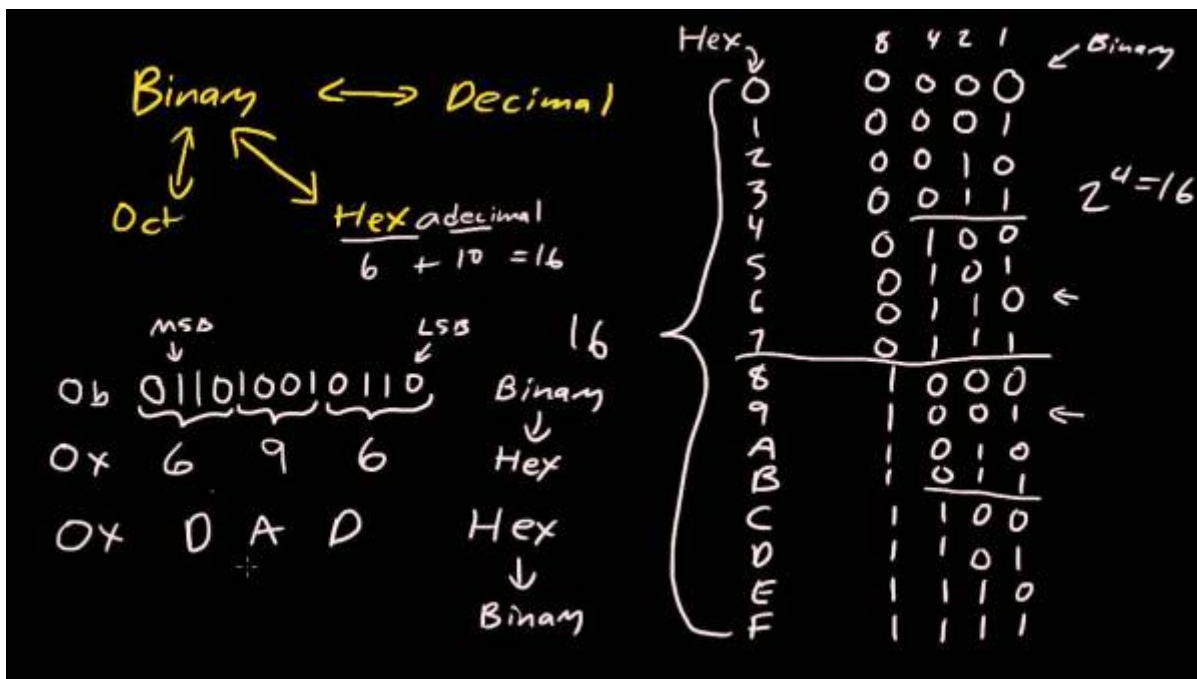 Binary ↔ Decimal
Oct
Hexadecimal
6 + 10 = 16
MSB LSB
0b 011010010110
0x 6 9 6
Binary
↓
Hex
0x D A D
Hex
↓
Binary
16
Hex 8 4 2 1 Binary
0 0 0 0 0
1 0 0 0 1
2 0 0 1 0
3 0 0 1 1
4 0 1 0 0
5 0 1 0 1
6 0 1 1 0 ←
7 0 1 1 1
8 1 0 0 0
9 1 0 0 1 ←
A 1 0 1 0
B 1 0 1 1
C 1 1 0 0
D 1 1 0 1
E 1 1 1 0
F 1 1 1 1
2⁴=16